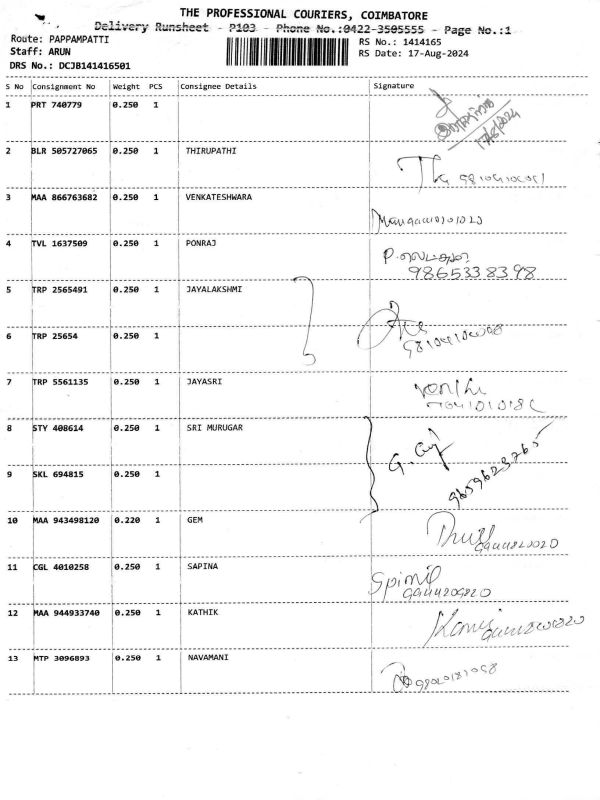 THE PROFESSIONAL COURIERS, COIMBATORE
Delivery Runsheet - P103 - Phone No.:0422-3505555 - Page No.:1
Route: PAPPAMPATTI
Staff: ARUN
DRS No.: DCJB141416501
RS No.: 1414165
RS Date: 17-Aug-2024
S No Consignment No Weight PCS Consignee Details Signature
1 PRT 740779 0.250 1
17/8/2024
2 BLR 505727065 0.250 1 THIRUPATHI
3 MAA 866763682 0.250 1 VENKATESHWARA
4 TVL 1637509 0.250 1 PONRAJ
9865338398
5 TRP 2565491 0.250 1 JAYALAKSHMI
6 TRP 25654 0.250 1
7 TRP 5561135 0.250 1 JAYASRI
8 STY 408614 0.250 1 SRI MURUGAR
9 SKL 694815 0.250 1
9659623765
10 MAA 943498120 0.220 1 GEM
11 CGL 4010258 0.250 1 SAPINA
12 MAA 944933740 0.250 1 KATHIK
13 MTP 3096893 0.250 1 NAVAMANI